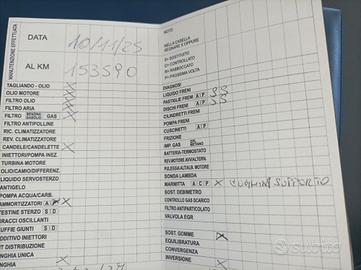 MANUTENZIONE EFFETTUATA
DATA 10/11/25
AL KM 153590
TAGLIANDO - OLIO X
OLIO MOTORE X
FILTRO OLIO X
FILTRO ARIA X
FILTRO GAS X
FILTRO ANTIPOLLINE
RIC. CLIMATIZZATORE
REV. CLIMATIZZATORE
CANDELE/CANDELETTE X
INIETTORI/POMPA INIEZ.
TURBINA MOTORE
OLIO/CAMBIO/DIFFEREN.
LIQUIDO SERVOSTERZO
ANTIGELO
POMPA ACQUA/CARB.
AMMORTIZZATORI A P X
TESTINE STERZO S D
BRACCI OSCILLANTI
CUFFIE GIUNTI S D
ADDITIVO INIETTORI
KIT DISTRIBUZIONE
CINGHIA NEG.
CINGHIA X
NOTE
NELLA CASELLA
SEGNARE X OPPURE
S= SOSTITUITO
C= CONTROLLATO
R= RABBOCCATO
P= PROSSIMA VOLTA
DIAGNOSI
LIQUIDO FRENI
PASTIGLIE FRENI A P SS
DISCHI FRENI A P SS
CILINDRETTI FRENI
POMPA FRENI
CUSCINETTI A P
FRIZIONE
IMP. GAS
BATTERIA-TERMOSTATO
REVI.MOTORE AVV/ALTERN.
PULEGGIA ALT/ALB. MOTORE
SONDA LAMBDA
MARMITTA A C P X SUPPORTO
SOST. DEBIMETRO
CONTROLLO GAS SCARICO
FILTRO ANTIPARTICOLATO
VALVOLA EGR
SOST. GOMME X
EQUILIBRATURA
CONVERGENZA
INVERSIONE X
subito